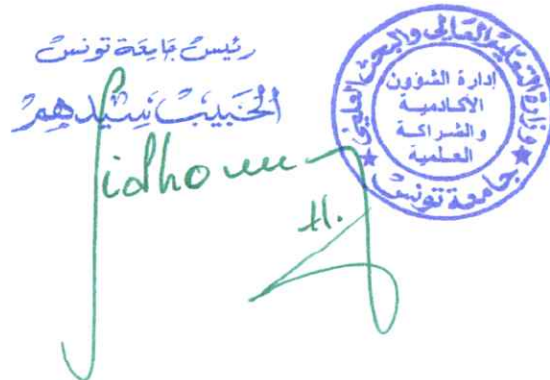 رئيس جامعة تونس
الحبيب سيدهم
Sidhom
H.
وزارة التعليم العالي والبحث العلمي
إدارة الشؤون
الأكادمية
والشراكة
العلمية
جامعة تونس